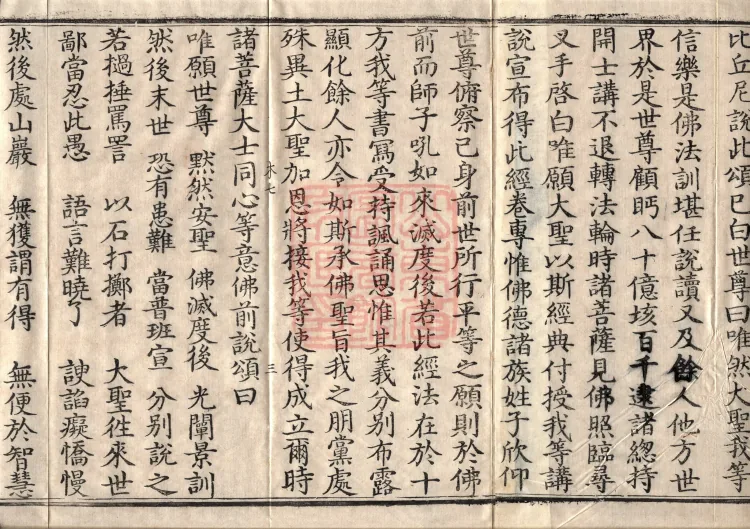 比丘尼說此頌已白世尊曰唯然大聖我等
信樂是佛法訓堪任說讀又及餘人他方世
界於是世尊顧眄八十億垓百千㚇遝諸緫持
開士講不退轉法輪時諸菩薩見佛照臨尋
叉手啓白唯願大聖以斯經典付授我等講
說宣布得此經卷專惟佛德諸族姓子欣仰
世尊俯察己身前世所行平等之願則於佛
前而師子吼如來滅度後若此經法在於十
方我等書寫受持諷誦思惟其義分別布露
顯化餘人亦令如斯承佛聖旨我之朋黨處
殊異土大聖加恩將接我等使得成立爾時
諸菩薩大士同心等意佛前說頌曰
唯願世尊 黙然安聖 佛滅度後 光闡景訓
然後末世 恐有患難 當普班宣 分別說之
若撾捶罵詈 以石打擲者 大聖徃來世
鄙當忍此愚 語言難曉了 諛諂癡憍慢
然後處山巖 無獲謂有得 無便於智慧